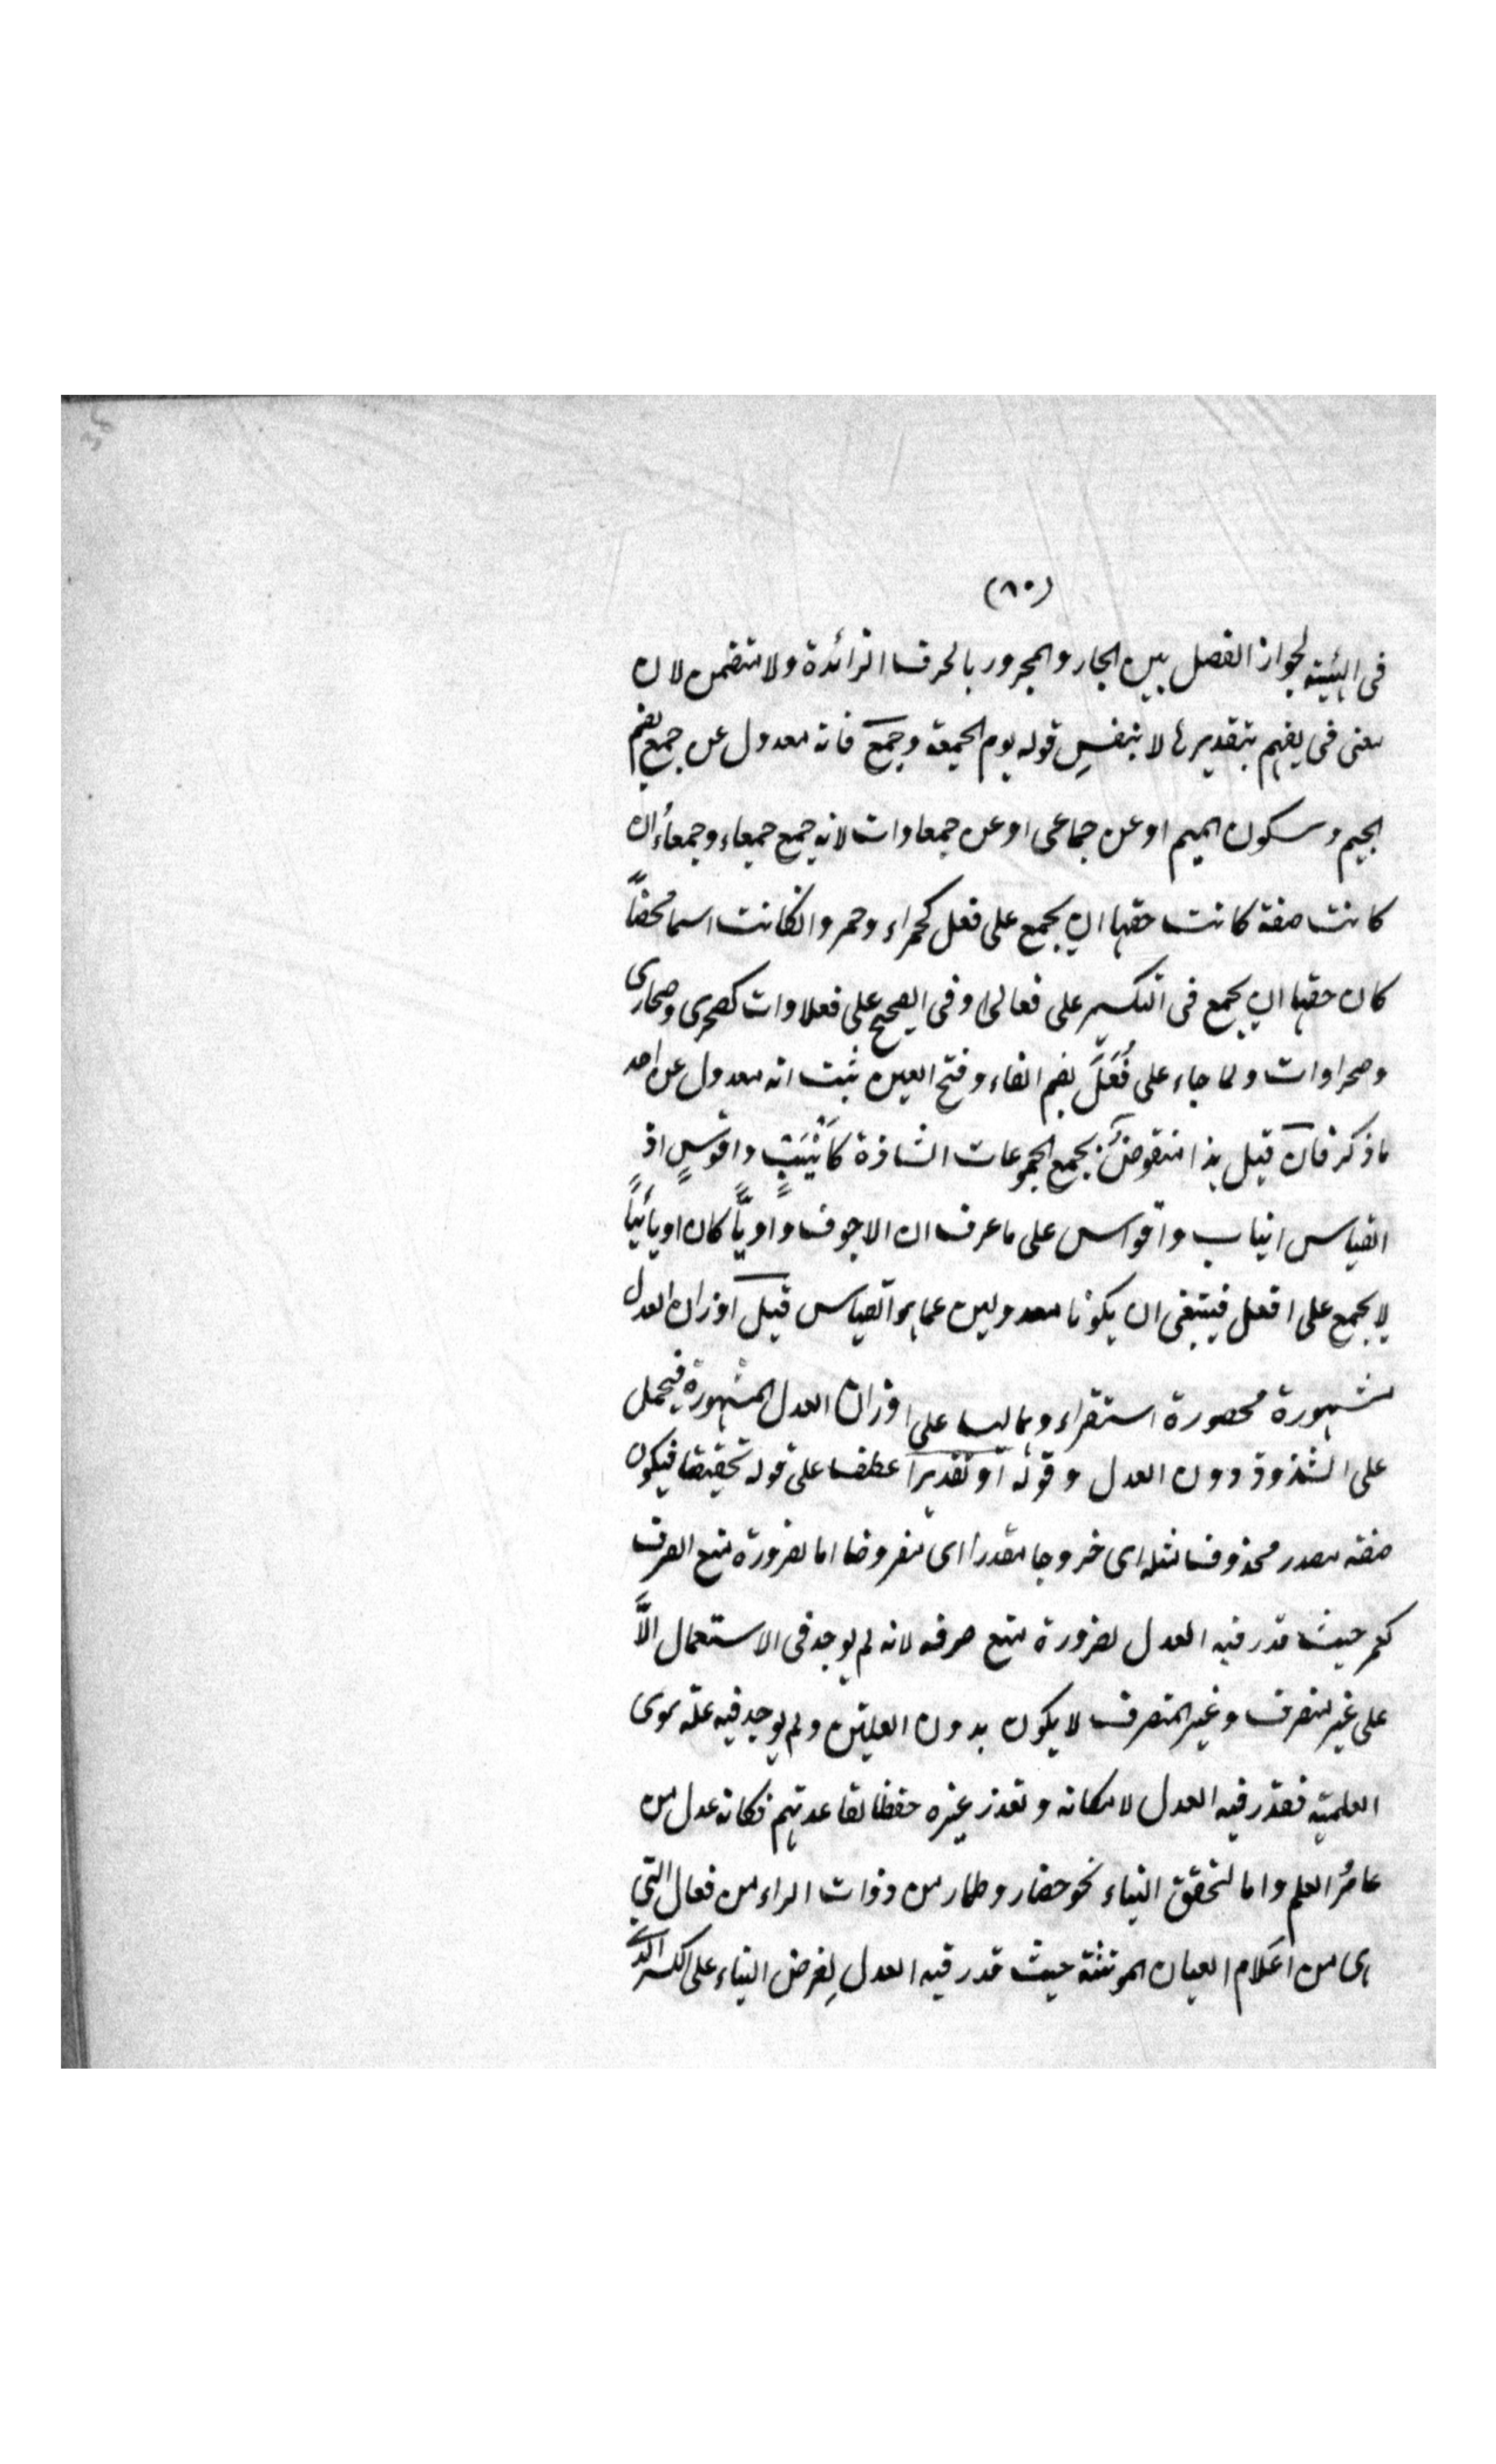 (٨٠)
فى الهيئية لجواز الفصل بين الجار والمجرور بالحرف الزائدة ولا متضمن لان
معنى فى يفهم بتقديرها لا بنفس قوله يوم الجمعة وجمع فانه معدول عن جمع بضم
الجيم وسكون الميم او عن جماعى او عن جمعاوات لانه جمع جمعاء وجمعاء ان
كانت صفة كانت حقها ان يجمع على فعل كحمراء وحمر وانكانت اسما محضاً
كان حقها ان يجمع فى التكسير على فعالى وفى الصحيح على فعلاوات كصحرى وصحارى
وصحراوات ولما جاء على فُعَلَ بضم الفاء وفتح العين ثبت انه معدول عن احد
ما ذكر فان قيل هذا منقوض بجمع الجموعات الشاذة كَاَنْيُبٍ واقوسٍ اذ
القياس انياب واقواس على ما عرف ان الاجوف واويًّا كان او يائيًّا
لا يجمع على افعل فينبغى ان يكونا معدولين عما هو القياس قيل اوزان العدل
مشهورة محصورة استقراء وهما ليسا على اوزان العدل المشهورة فيحمل
على الشذوذ دون العدل وقوله او تقديرا عطف على قوله تحقيقا فيكون
صفة مصدر محذوف مثله اى خروجا مقدرا اى مفروضا اما لضرورة منع الصرف
كعمر حيث قدر فيه العدل لضرورة منع صرفه لانه لم يوجد فى الاستعمال الاَّ
على غير منصرف وغير المنصرف لا يكون بدون العلتين ولم يوجد فيه علة سوى
العلمية فقدر فيه العدل لامكانه وتعذر غيره حفظا لقاعدتهم فكانه عدل من
عامرُ العلم واما لتحقق البناء نحو حضار وطمار من ذوات الراء من فعال التى
هى من اعلام العيان المؤنثة حيث قدر فيه العدل لِغرض البناء على الكسر الذى